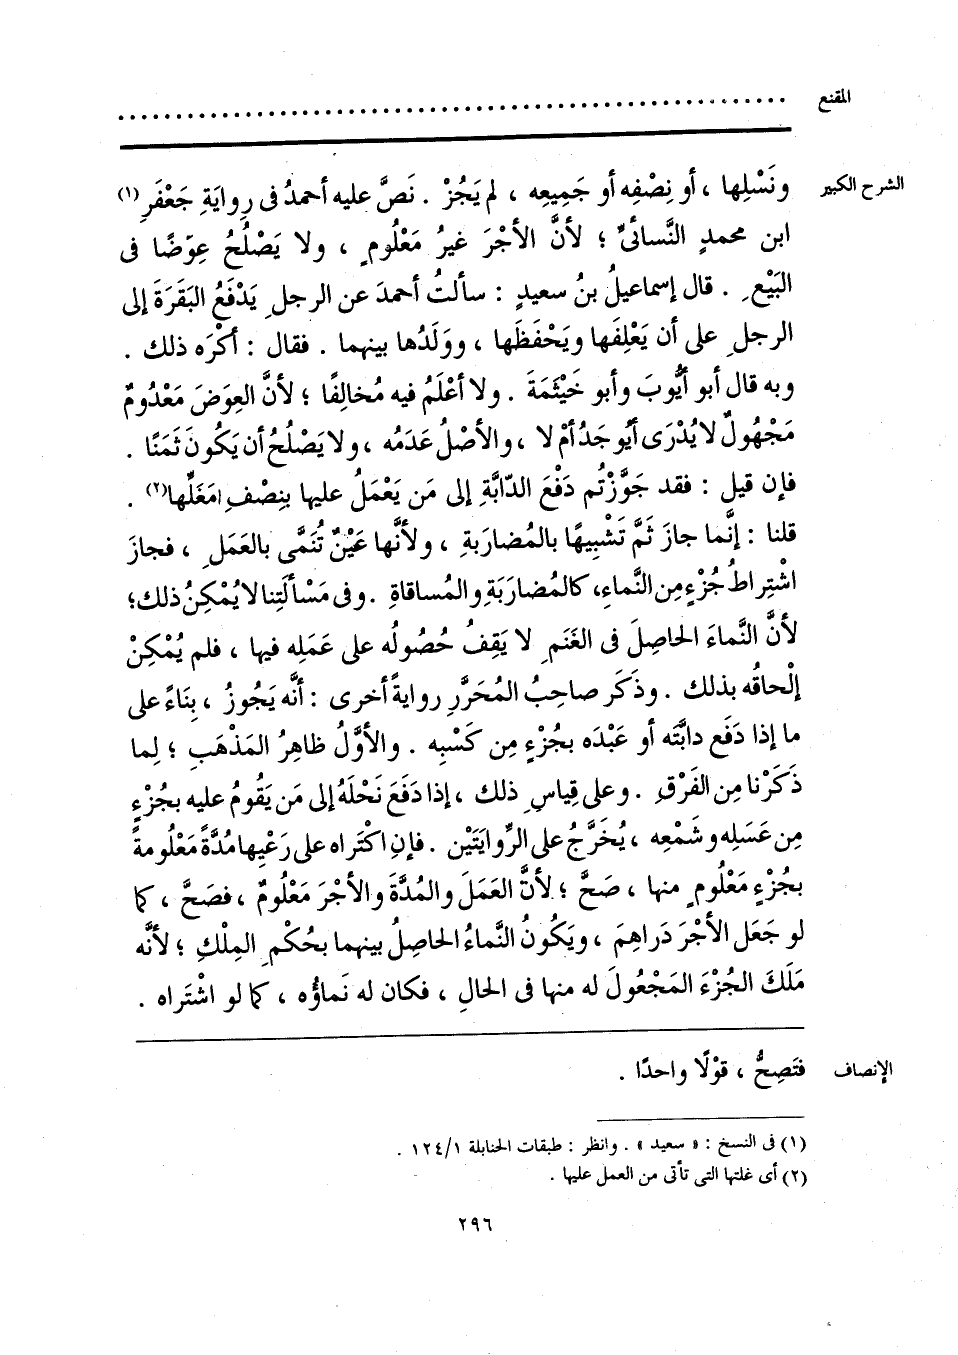 المقنع ........................................................
الشرح الكبير ونَسْلِها ، أو نِصْفِه أو جَمِيعِه ، لم يَجُزْ . نَصَّ عليه أحمدُ فى رِوايَةِ جَعْفَرِ(١)
ابن محمدٍ النَّسائىِّ ؛ لأنَّ الأجْرَ غيرُ مَعْلُومٍ ، ولا يَصْلُحُ عِوَضًا فى
البَيْعِ . قال إسماعيلُ بنُ سعيدٍ : سألتُ أحمدَ عن الرجلِ يَدْفَعُ البَقَرَةَ إلى
الرجلِ على أن يَعْلِفَها ويَحْفَظَها ، ووَلَدُها بينهما . فقال : أكْرَه ذلك .
وبه قال أبو أيُّوبَ وأبو خَيْثَمَةَ . ولا أعْلَمُ فيه مُخالِفًا ؛ لأنَّ العِوَضَ مَعْدُومٌ
مَجْهُولٌ لا يُدْرَى أيُوجَدُ أمْ لا ، والأصْلُ عَدَمُه ، ولا يَصْلُحُ أن يَكُونَ ثَمَنًا .
فإن قيل : فقد جَوَّزْتُم دَفْعَ الدّابَّةِ إلى مَن يَعْمَلُ عليها بنِصْفِ مَغَلِّها(٢) .
قلنا : إنَّما جاز ثَمَّ تَشْبِيهًا بالمُضارَبةِ ، ولأنَّها عَيْنٌ تُنَمَّى بالعَمَلِ ، فجازَ
اشْتِراطُ جُزْءٍ مِن النَّماءِ، كالمُضارَبَةِ والمُساقاةِ . وفى مَسْألَتِنا لا يُمْكِنُ ذلك؛
لأنَّ النَّماءَ الحاصِلَ فى الغَنَمِ لا يَقِفُ حُصُولُه على عَمَلِه فيها ، فلم يُمْكِنْ
إلْحاقُه بذلك . وذَكَر صاحِبُ المُحَرَّرِ روايةً أخرى : أنَّه يَجُوزُ ، بِناءً على
ما إذا دَفَع دابَّتَه أو عَبْدَه بجُزْءٍ مِن كَسْبِه . والأوَّلُ ظاهِرُ المَذْهَبِ ؛ لِما
ذَكَرْنا مِن الفَرْقِ . وعلى قِياسِ ذلك ، إذا دَفَعَ نَحْلَهُ إلى مَن يَقُومُ عليه بجُزْءٍ
مِن عَسَلِه وشَمْعِه ، يُخَرَّجُ على الرِّوايَتَيْن . فإنِ اكْتَراه على رَعْيِها مُدَّةً مَعْلُومةً
بجُزْءٍ مَعْلُومٍ منها ، صَحَّ ؛ لأنَّ العَمَلَ والمُدَّةَ والأجْرَ مَعْلُومٌ ، فصَحَّ ، كما
لو جَعَل الأجْرَ دَراهِمَ ، ويَكُونُ النَّماءُ الحاصِلُ بينهما بحُكْمِ المِلْكِ ؛ لأنَّه
مَلَكَ الجُزْءَ المَجْعُولَ له منها فى الحالِ ، فكان له نَماؤُه ، كما لو اشْتَراه .
الإنصاف فتَصِحُّ ، قَوْلًا واحدًا .
(١) فى النسخ : « سعيد » . وانظر : طبقات الحنابلة ١٢٤/١ .
(٢) أى غلتها التى تأتى من العمل عليها .
٢٩٦